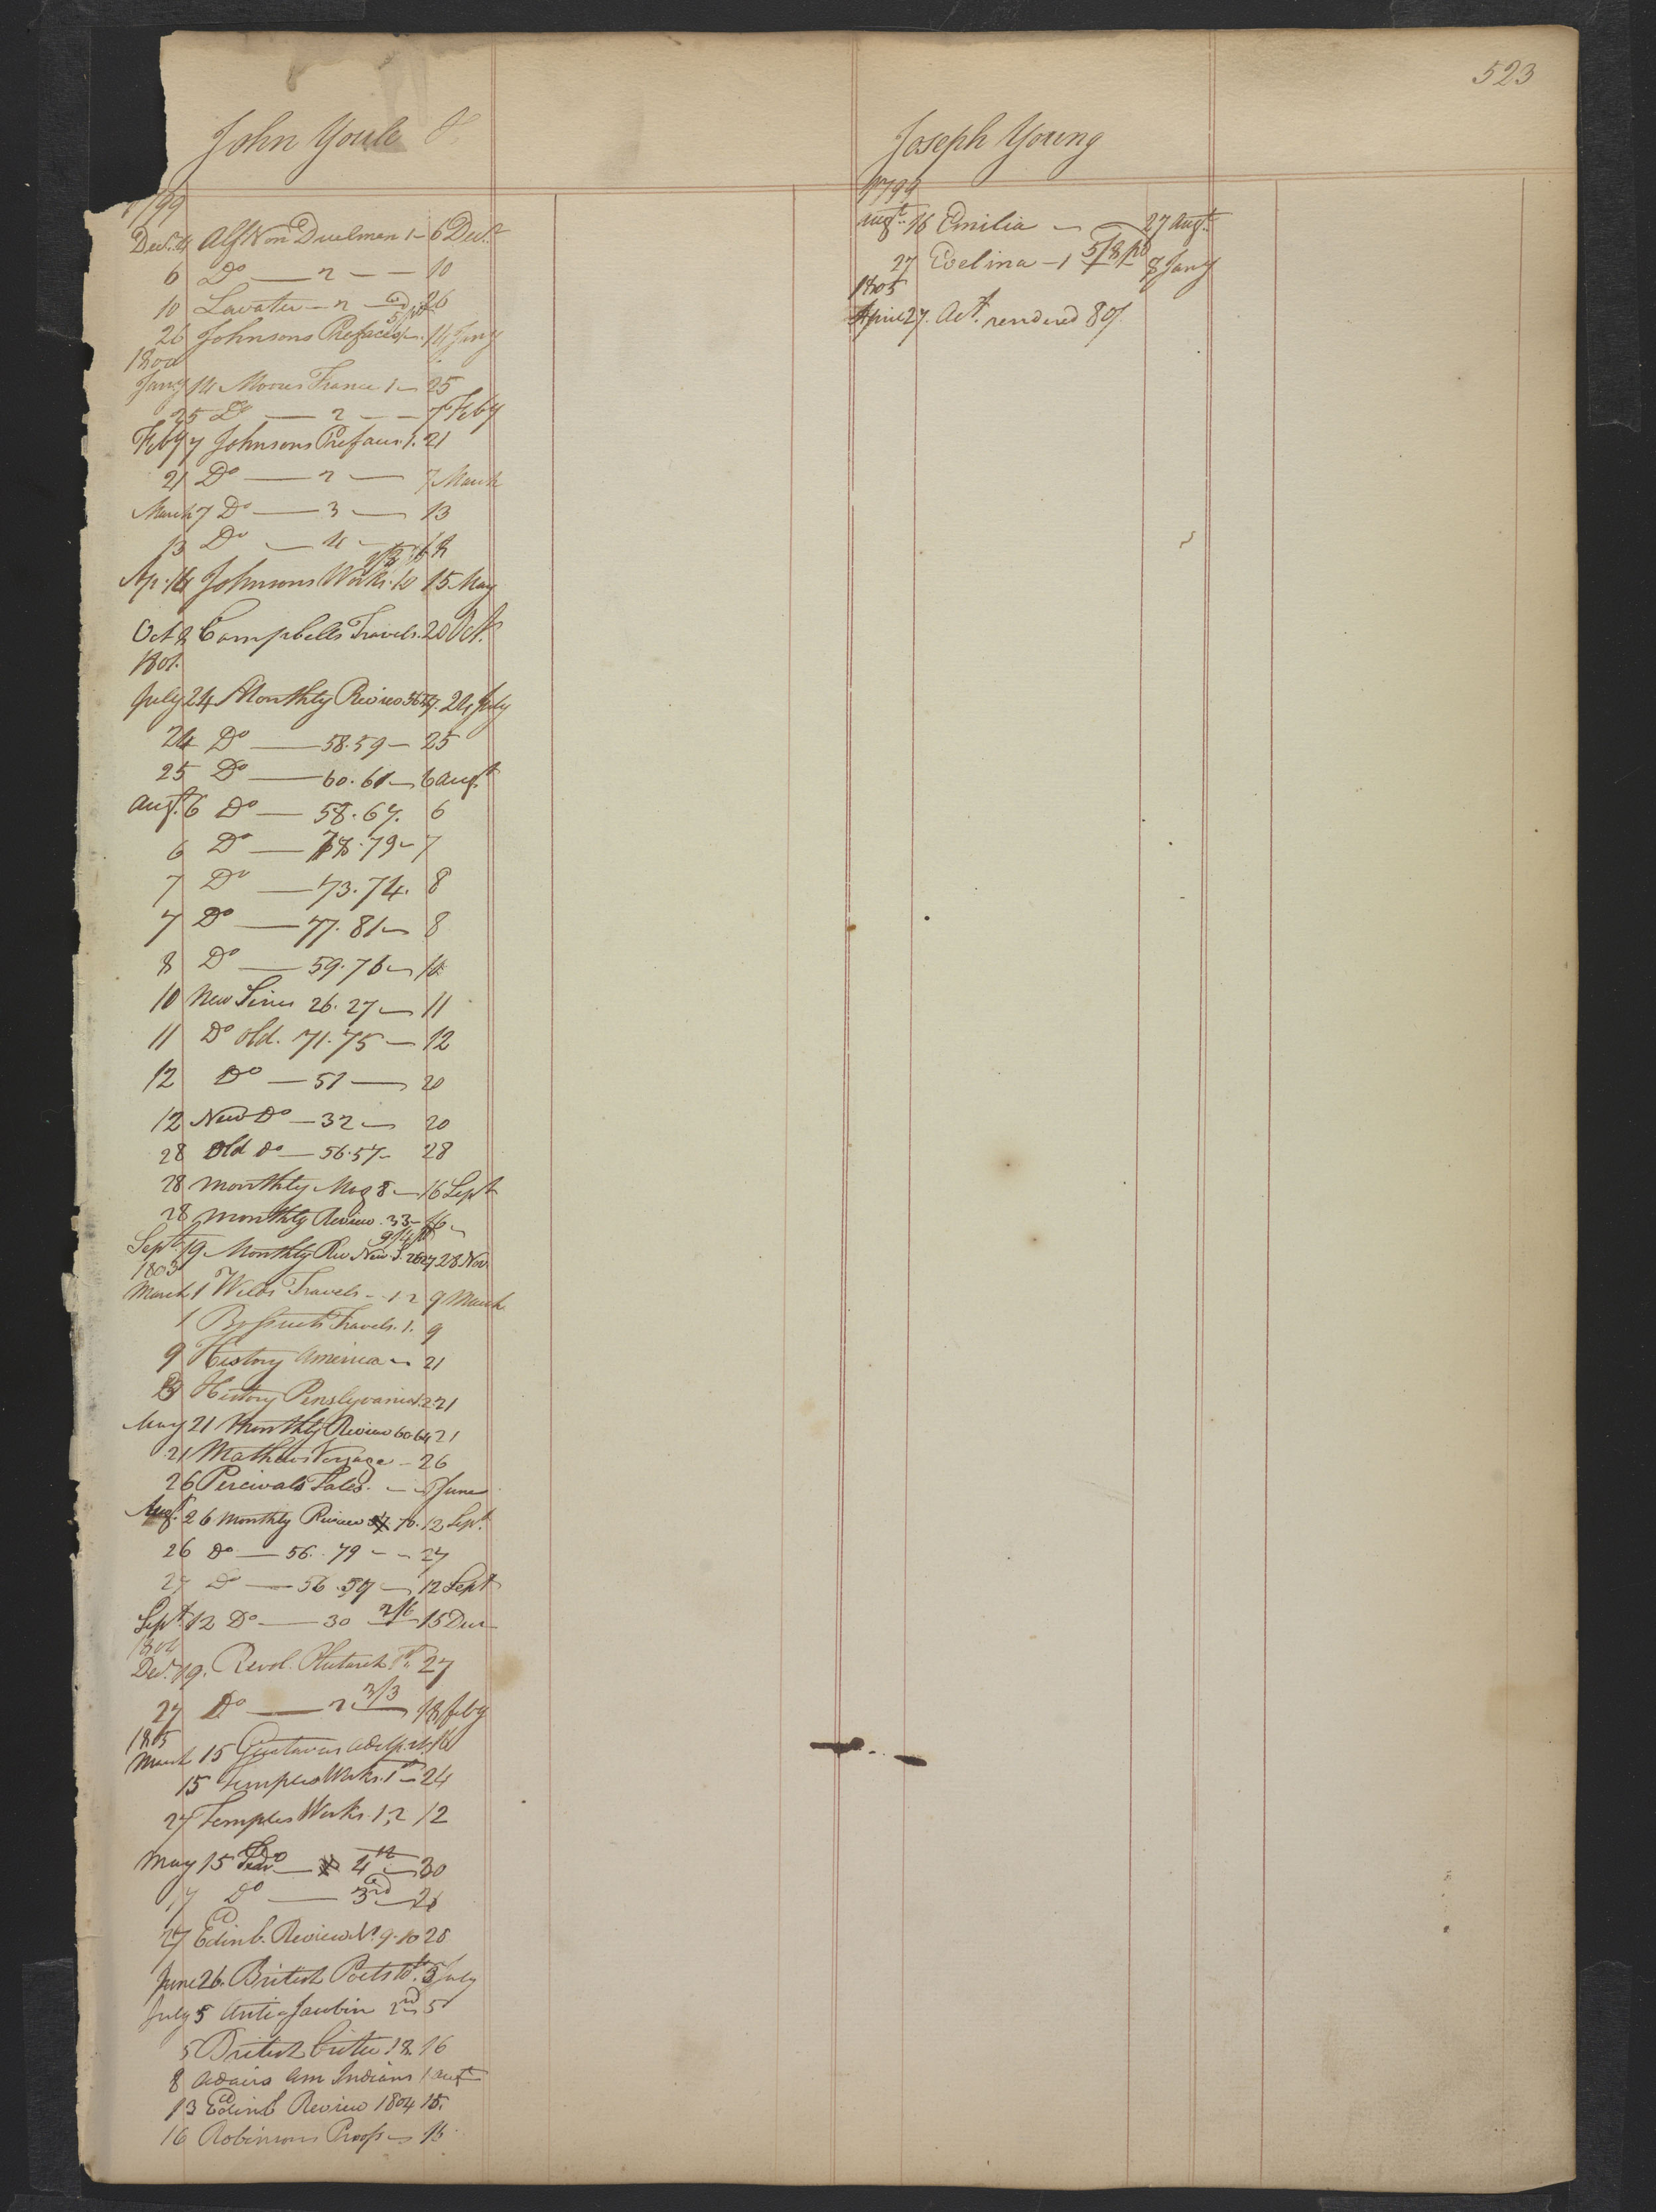 523
John Youle
1799
Decr. 4 Alf Von Duelman 1 - 6 Decr.
6 Do — 2 — 10
10 Lavater — 2 — 26
26 Johnsons Prefaces 14 Jany
1800
Jany 14 Moores France 1 — 25
25 Do — 2 — 7 Feby
Feby 7 Johnsons Prefaces 1. 21
21 Do — 2 — 7 March
March 7 Do — 3 — 13
13 Do — 4 —
Ap. 14 Johnsons Works. 10 15 May
Oct 8 Campbells Travels. 20 Oct.
1801.
July 24 Monthly Review 24 July
24 Do — 58.59 — 25
25 Do — 60.61 — 6 Augt
Augt. 6 Do — 58.67. 6
6 Do — 78.79 - 7
7 Do — 73.74. 8
7 Do — 77.81 — 8
8 Do — 59.76 — 10
10 New Series 26.27 — 11
11 Do old. 71.75 — 12
12 Do — 51 — 20
12 New Do — 32 — 20
28 Old do — 56.57 - 28
28 Monthly Mag 8 — 16 Sept
28 Monthly Review. 33 - 16
Sept. 19 Monthly Rev New S. 26 27 28 Nov.
1803
March 1 Welds Travels - 1 2 9 March
1 Travels. 1. 9
9 History America — 21
History Penslyvania 1.2 21
May 21 Monthly Review 60 64 21
21 Mathews Voyage - 26
26 Percivals Tales. — June
Augt. 26 Monthly Review 70. 12 Sept.
26 do — 56. 79 - - 27
27 Do — 56.57 — 12 Sept
Sept. 12 Do — 30 2/6 15 Decr
1804
Decr. 19. Revol. Plutarch 1st. 27
27 Do — 2. 3/3 18 feby
1805
March 15 Gustavus Adolp.
15 Temples Works. 1st — 24
27 Temples Works. 1, 2 12
May 15 Do — 4th — 30
17 Do — 3rd — 26
27 Edinb. Review No. 9. 10 28
June 26. British Poets 10th. 5 July
July 5 Anti-Jacobin 2nd 5
5 British Critic 18 16
8 Adairs Am Indians 1 Augt
13 Edinb Review 1804 15.
16 Robinsons Proofs —
Joseph Young
1799
Augt. 16 Emilia — 27 Augt.
27 Evelina — 1 5/8 pd 8 Jany
1805
April 27. Act. rendered 8/.